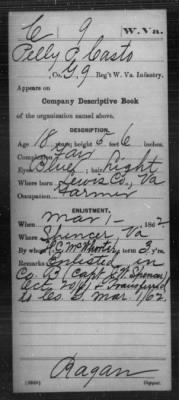 C 9 W. Va.
Pelly P Casto
, Co. G, 9 Reg't W. Va. Infantry.
Appears on
Company Descriptive Book
of the organization named above.
DESCRIPTION.
Age 18 years; height 5 feet 6 inches.
Complexion Fair
Eyes Blue; hair Light
Where born Lewis Co., Va
Occupation Farmer
ENLISTMENT.
When Mar 1 - , 186 2.
Where Spencer Va
By whom J.C. McWhorter; term 3 y'rs.
Remarks: Enlisted in
Co. B (Capt J.W. Spencer)
transferred
to Co. G Mar 1/62
Ragan
Copyist.